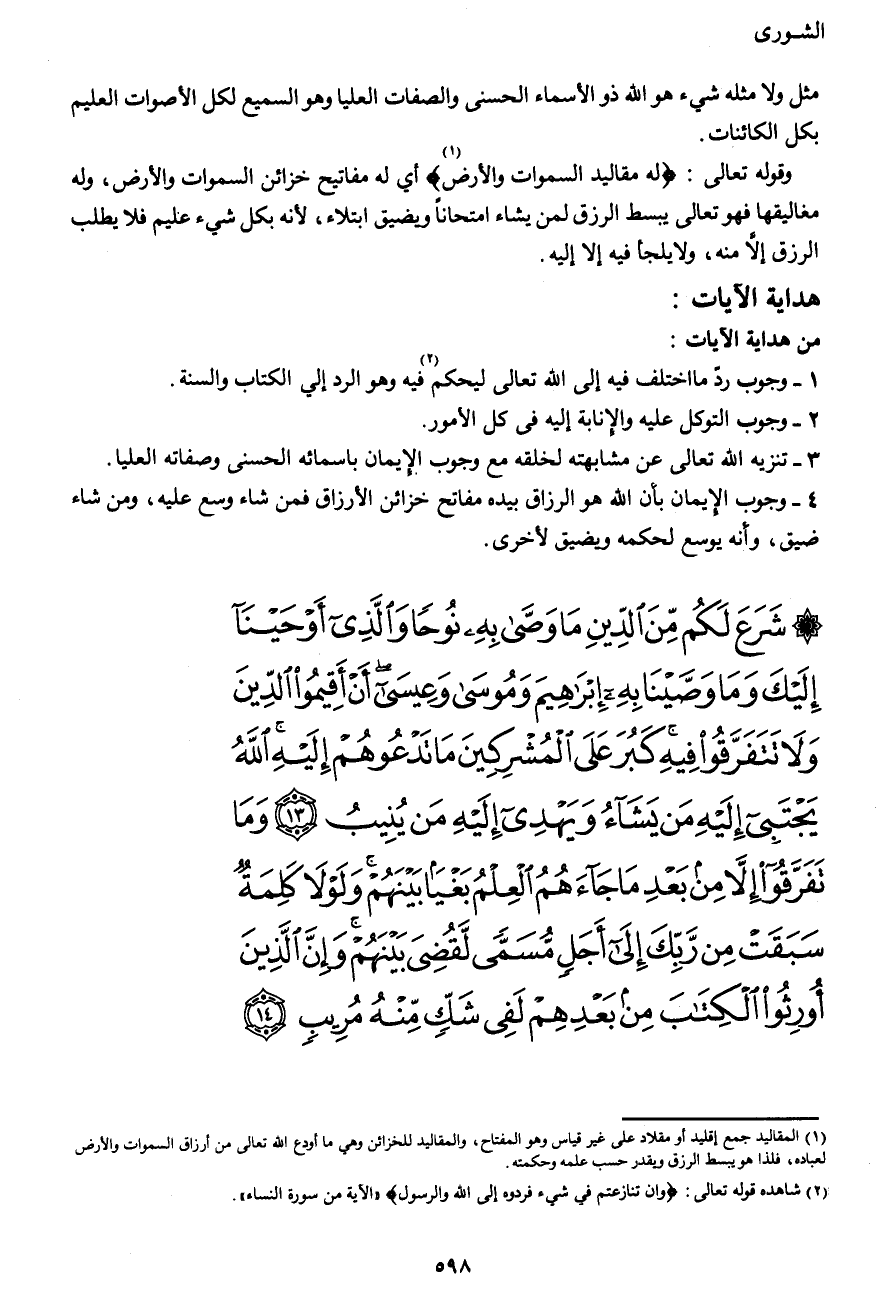 الشورى
مثل ولا مثله شيء هو الله ذو الأسماء الحسنى والصفات العليا وهو السميع لكل الأصوات العليم
بكل الكائنات.
وقوله تعالى : ﴿له مقاليد السموات والأرض﴾(١) أي له مفاتيح خزائن السموات والأرض، وله
مغاليقها فهو تعالى يبسط الرزق لمن يشاء امتحاناً ويضيق ابتلاء، لأنه بكل شيء عليم فلا يطلب
الرزق إلاَّ منه، ولايلجأ فيه إلا إليه.
هداية الآيات :
من هداية الآيات :
١ - وجوب ردّ مااختلف فيه إلى الله تعالى ليحكم(٢) فيه وهو الرد إلي الكتاب والسنة.
٢ - وجوب التوكل عليه والإنابة إليه فى كل الأمور.
٣ - تنزيه الله تعالى عن مشابهته لخلقه مع وجوب الإيمان باسمائه الحسنى وصفاته العليا.
٤ - وجوب الإيمان بأن الله هو الرزاق بيده مفاتح خزائن الأرزاق فمن شاء وسع عليه، ومن شاء
ضيق، وأنه يوسع لحكمه ويضيق لأخرى.
۞ شَرَعَ لَكُم مِّنَ ٱلدِّينِ مَا وَصَّىٰ بِهِۦ نُوحًا وَٱلَّذِىٓ أَوْحَيْنَآ
إِلَيْكَ وَمَا وَصَّيْنَا بِهِۦٓ إِبْرَٰهِيمَ وَمُوسَىٰ وَعِيسَىٰٓ ۖ أَنْ أَقِيمُوا۟ ٱلدِّينَ
وَلَا تَتَفَرَّقُوا۟ فِيهِ ۚ كَبُرَ عَلَى ٱلْمُشْرِكِينَ مَا تَدْعُوهُمْ إِلَيْهِ ۚ ٱللَّهُ
يَجْتَبِىٓ إِلَيْهِ مَن يَشَآءُ وَيَهْدِىٓ إِلَيْهِ مَن يُنِيبُ ١٣ وَمَا
تَفَرَّقُوٓا۟ إِلَّا مِنۢ بَعْدِ مَا جَآءَهُمُ ٱلْعِلْمُ بَغْيًۢا بَيْنَهُمْ ۚ وَلَوْلَا كَلِمَةٌ
سَبَقَتْ مِن رَّبِّكَ إِلَىٰٓ أَجَلٍ مُّسَمًّى لَّقُضِىَ بَيْنَهُمْ ۚ وَإِنَّ ٱلَّذِينَ
أُورِثُوا۟ ٱلْكِتَٰبَ مِنۢ بَعْدِهِمْ لَفِى شَكٍّ مِّنْهُ مُرِيبٍ ١٤
(١) المقاليد جمع إقليد أو مقلاد على غير قياس وهو المفتاح، والمقاليد للخزائن وهي ما أودع الله تعالى من أرزاق السموات والأرض
لعباده، فلذا هو يبسط الرزق ويقدر حسب علمه وحكمته.
(٢) شاهده قوله تعالى : ﴿وان تنازعتم في شيء فردوه إلى الله والرسول﴾ «الآية من سورة النساء».
٥٩٨